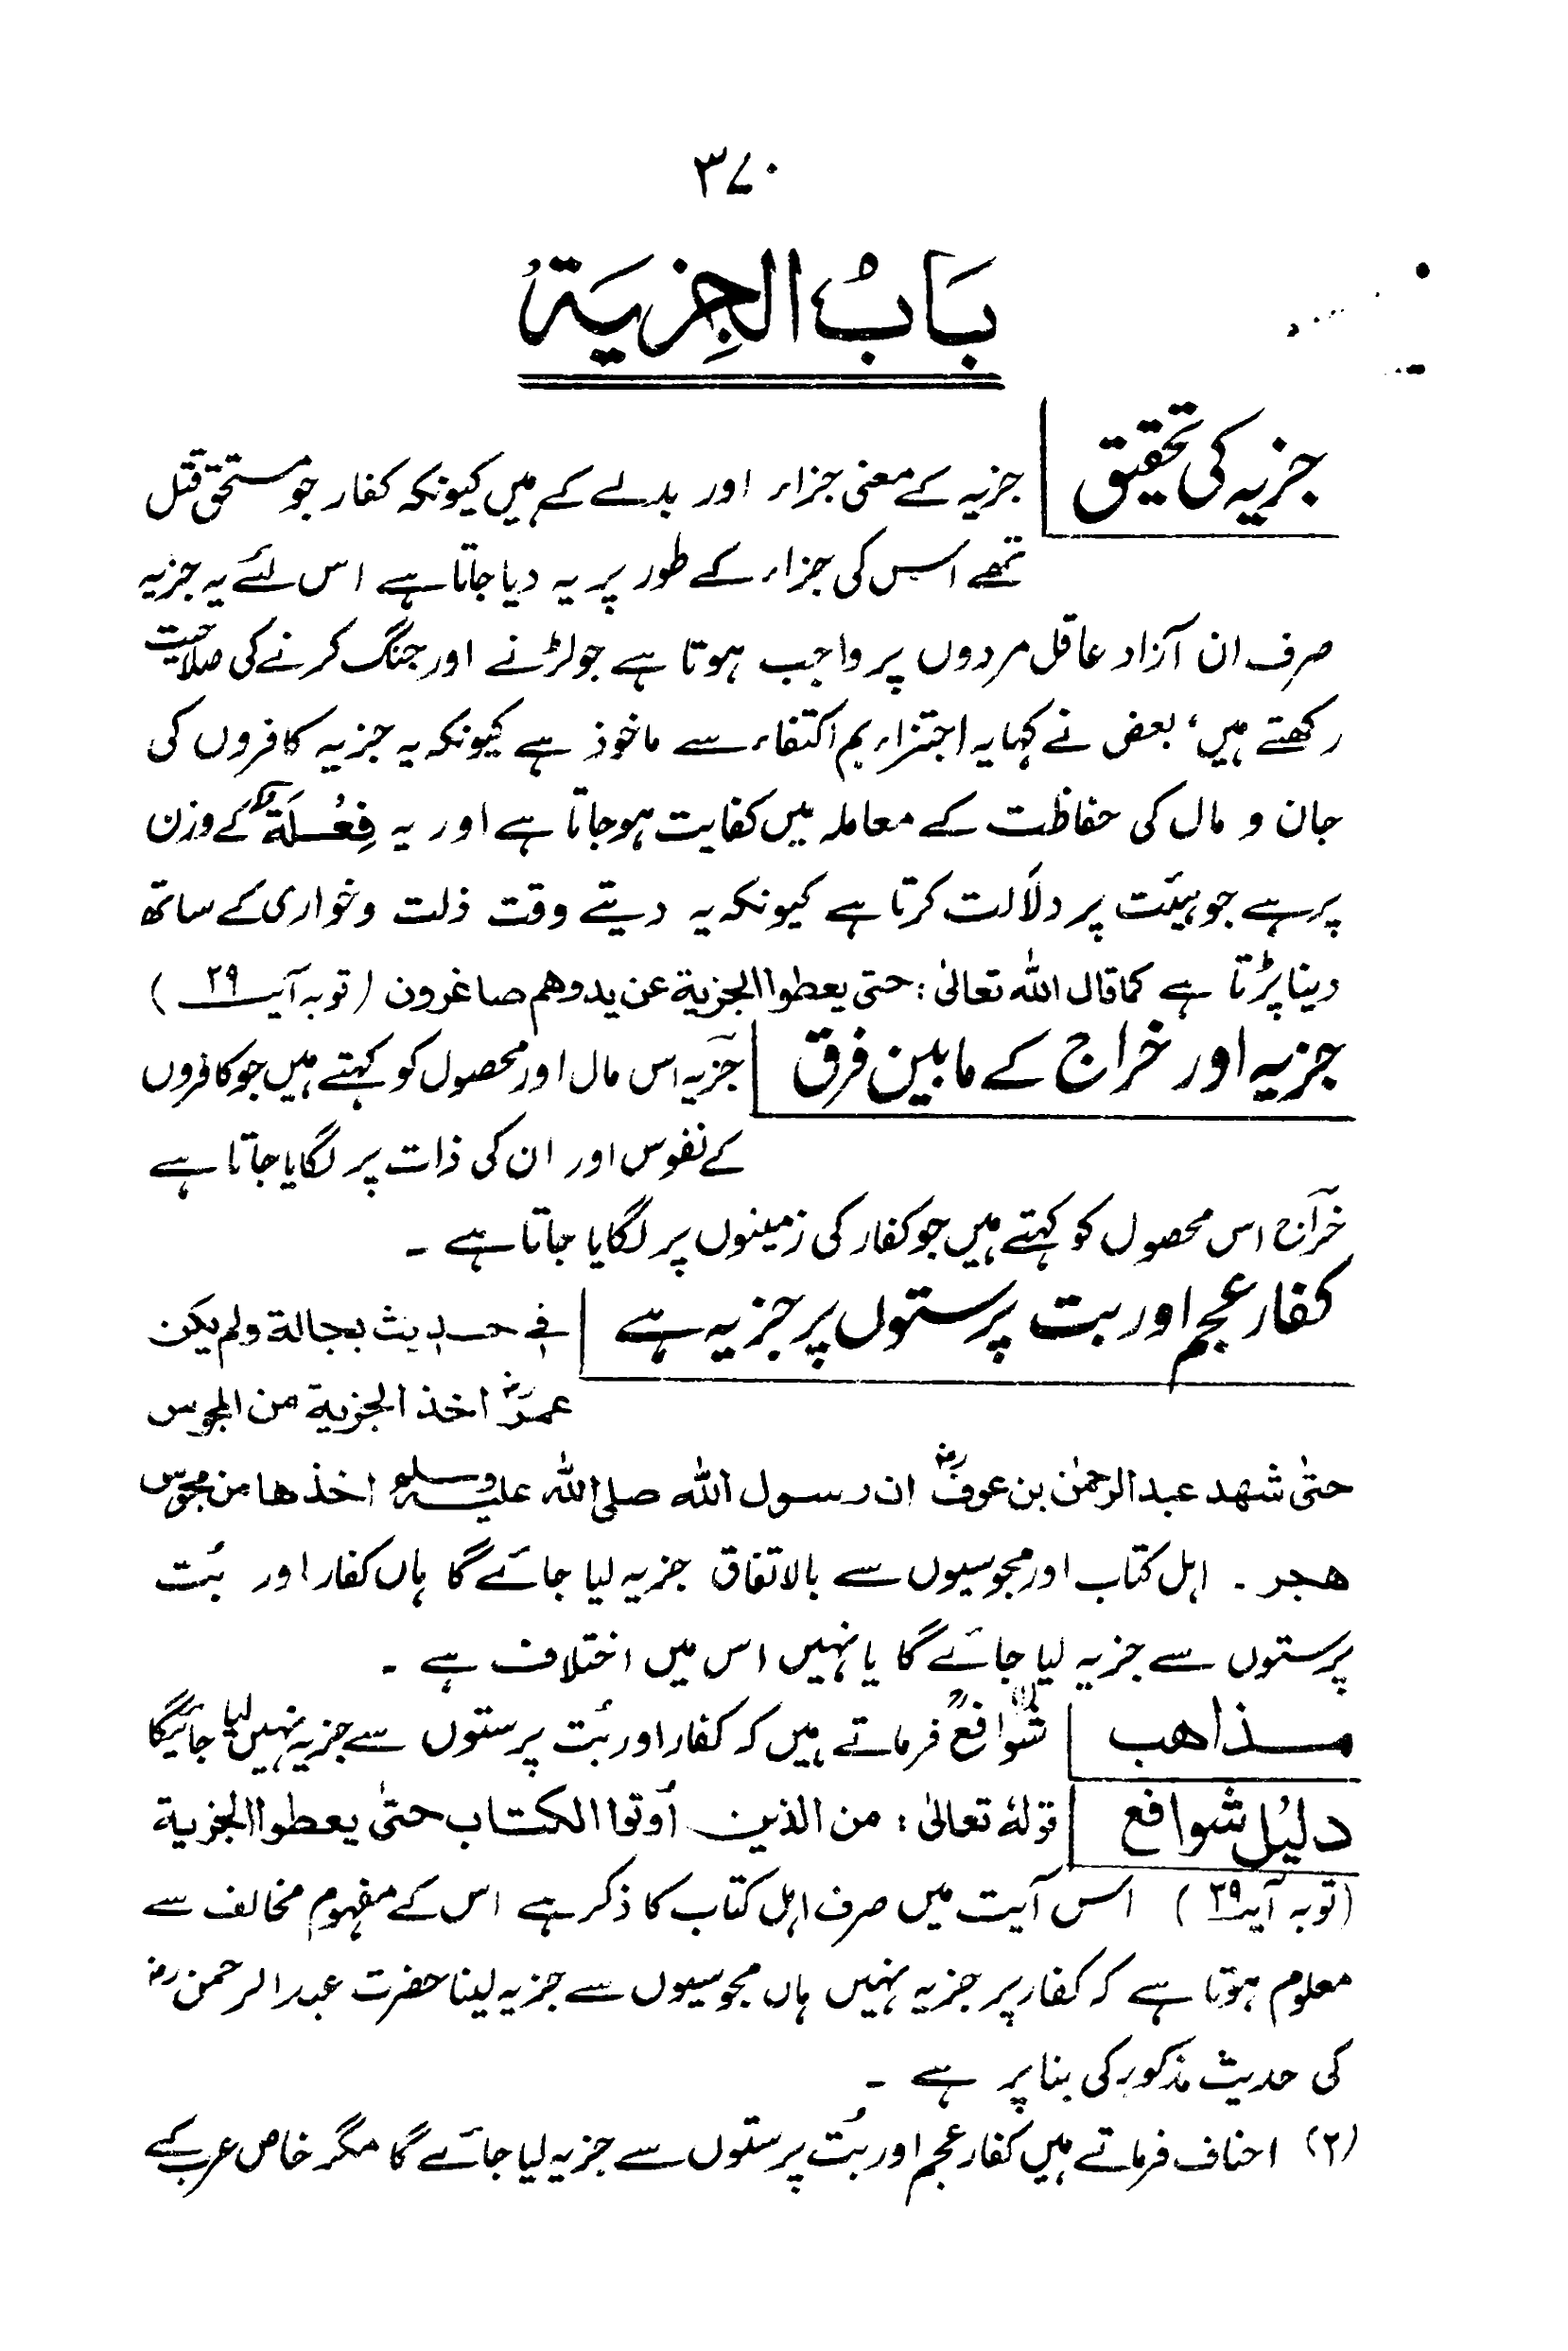 ۳۷۰
بَابُ الجِزيَةُ
جزیہ کی تحقیق
جزیہ کے معنی جزاء اور بدلے کے ہیں کیونکہ کفار جو مستحق قتل
تھے اس کی جزاء کے طور پر یہ دیا جاتا ہے اس لئے یہ جزیہ
صرف ان آزاد عاقل مردوں پر واجب ہوتا ہے جو لڑنے اور جنگ کرنے کی صلاحیت
رکھتے ہیں، بعض نے کہا یہ اجتزاء بم اکتفاء سے ماخوذ ہے کیونکہ یہ جزیہ کافروں کی
جان و مال کی حفاظت کے معاملہ میں کفایت ہوجاتا ہے اور یہ فِعُلَة کے وزن
پر ہے جو ہیئت پر دلاَلت کرتا ہے کیونکہ یہ دیتے وقت ذلت وخواری کے ساتھ
دینا پڑتا ہے کما قال اللہ تعالیٰ: حتی یعطوا الجزیة عن ید وهم صاغرون (توبہ آیت ۲۹)
جزیہ اور خراج کے مابین فرق
جزیہ اس مال اور محصول کو کہتے ہیں جو کافروں
کے نفوس اور ان کی ذات پر لگایا جاتا ہے
خراج اس محصول کو کہتے ہیں جو کفار کی زمینوں پر لگایا جاتا ہے ۔
کفار عجم اور بت پرستوں پر جزیہ ہے
فی حدیث بجالة ولم یکن
عمرؓ اخذ الجزیة من المجوس
حتیٰ شهد عبد الرحمٰن بن عوفؓ ان رسول اللہ صلی اللہ علیہ وسلم اخذها من مجوس
هجر ۔ اہل کتاب اور مجوسیوں سے بالاتفاق جزیہ لیا جائے گا ہاں کفار اور بُت
پرستوں سے جزیہ لیا جائے گا یا نہیں اس میں اختلاف ہے ۔
مذاهب
(۱) شوافعؒ فرماتے ہیں کہ کفار اور بُت پرستوں سے جزیہ نہیں لیا جائیگا
دلیل شوافع
قولهٗ تعالیٰ: من الذین اُوتوا الکتاب حتیٰ یعطوا الجزیة
(توبہ آیت ۲۹) اس آیت میں صرف اہل کتاب کا ذکر ہے اس کے مفہوم مخالف سے
معلوم ہوتا ہے کہ کفار پر جزیہ نہیں ہاں مجوسیوں سے جزیہ لینا حضرت عبد الرحمنؓ
کی حدیث مذکور کی بنا پر ہے ۔
(۲) احناف فرماتے ہیں کفار عجم اور بُت پرستوں سے جزیہ لیا جائے گا مگر خاص عرب کے